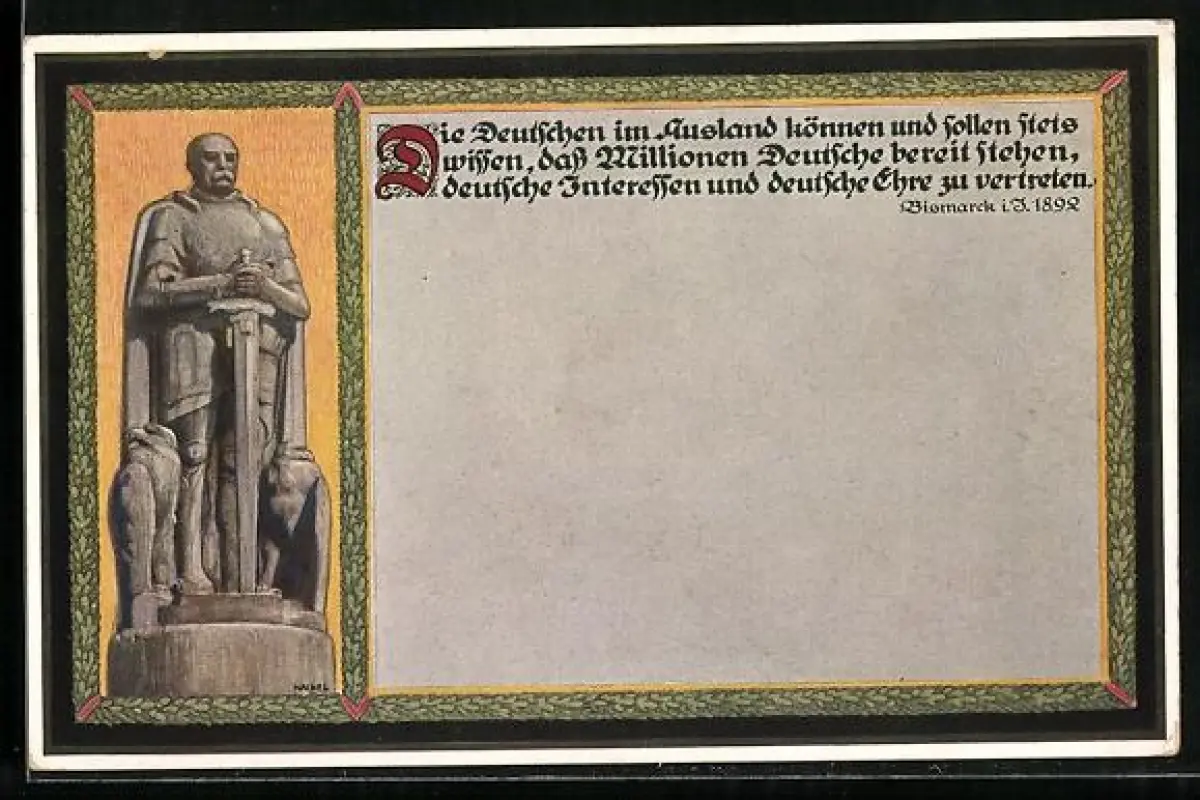 Die Deutschen im Ausland können und sollen stets
wissen, daß Millionen Deutsche bereit stehen,
deutsche Interessen und deutsche Ehre zu vertreten.
Bismarck i. J. 1892